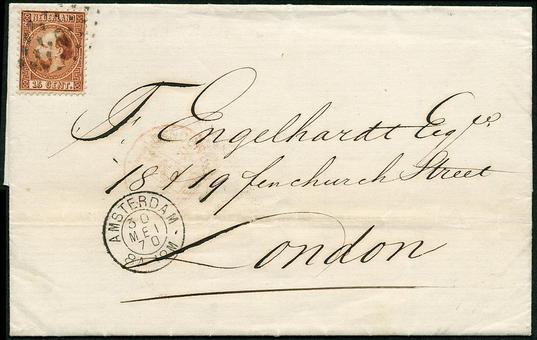 NEDERLAND
15 CENT.
F. Engelhardt Esqre
18 & 19 fenchurch Street
London
AMSTERDAM
30
MEI
70